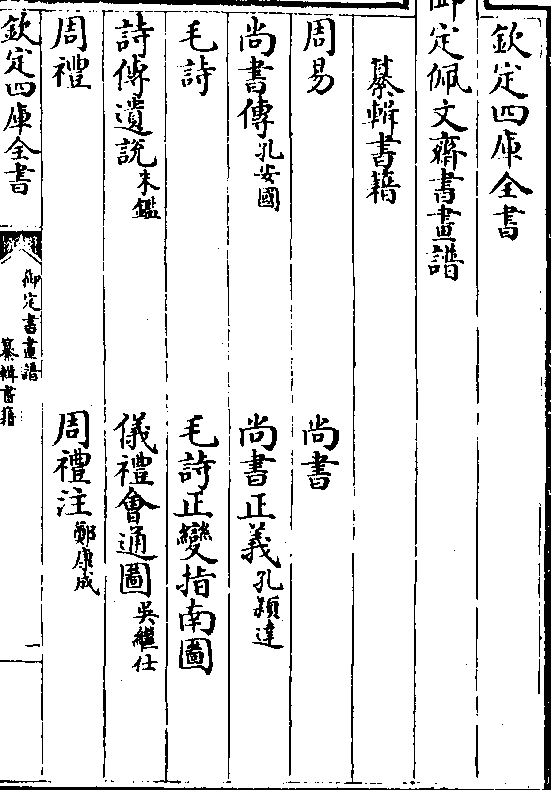 欽定四庫全書
御定佩文齋書畫譜
纂輯書籍
周易 尚書
尚書傳 孔安國 尚書正義 孔穎達
毛詩 毛詩正變指南圖
詩傳遺說 朱鑑 儀禮會通圖 吳繼仕
周禮 周禮注 鄭康成
欽定四庫全書
御定書畫譜
纂輯書籍
一